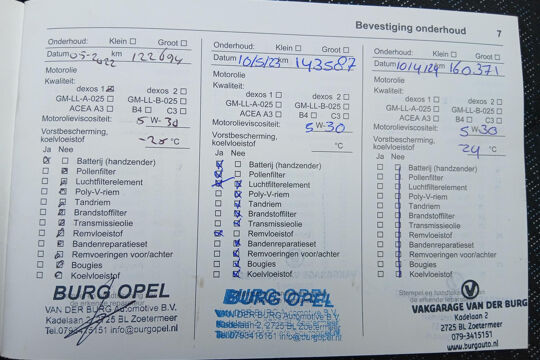 Bevestiging onderhoud 7
Onderhoud: Klein ☐ Groot ☐
Datum 05-2022 km 122694
Motorolie
Kwaliteit:
dexos 1 ☒ dexos 2 ☐
GM-LL-A-025 ☐ GM-LL-B-025 ☐
ACEA A3 ☐ B4 ☐ C3 ☐
Motorolieviscositeit:
5 W-30
Vorstbescherming,
koelvloeistof
-28 °C
Ja Nee
Batterij (handzender)
Pollenfilter
Luchtfilterelement
Poly-V-riem
Tandriem
Brandstoffilter
Transmissieolie
Remvloeistof
Bandenreparatieset
Remvoeringen voor/achter
Bougies
Koelvloeistof
BURG OPEL
VAN DER BURG Automotive B.V.
Kadelaan 2, 2725 BL Zoetermeer
Tel.0793415151 info@burgopel.nl
Onderhoud: Klein ☐ Groot ☐
Datum 10/5/23 km 143587
Motorolie
Kwaliteit:
dexos 1 ☐ dexos 2 ☐
GM-LL-A-025 ☐ GM-LL-B-025 ☐
ACEA A3 ☐ B4 ☐ C3 ☐
Motorolieviscositeit:
5 W-30
Vorstbescherming,
koelvloeistof
°C
Ja Nee
Batterij (handzender)
Pollenfilter
Luchtfilterelement
Poly-V-riem
Tandriem
Brandstoffilter
Transmissieolie
Remvloeistof
Bandenreparatieset
Remvoeringen voor/achter
Bougies
Koelvloeistof
BURG OPEL
VAN DER BURG Automotive B.V.
Kadelaan 2, 2725 BL Zoetermeer
Tel.0793415151 info@burgopel.nl
Onderhoud: Klein ☐ Groot ☐
Datum 10/4/24 km 160.371
Motorolie
Kwaliteit:
dexos 1 ☐ dexos 2 ☐
GM-LL-A-025 ☐ GM-LL-B-025 ☐
ACEA A3 ☐ B4 ☐ C3 ☐
Motorolieviscositeit:
5 W-30
Vorstbescherming,
koelvloeistof
24 °C
Ja Nee
Batterij (handzender)
Pollenfilter
Luchtfilterelement
Poly-V-riem
Tandriem
Brandstoffilter
Transmissieolie
Remvloeistof
Bandenreparatieset
Remvoeringen voor/achter
Bougies
Koelvloeistof
Stempel en handtekening
de erkende reparateur
VAKGARAGE VAN DER BURG
Kadelaan 2
2725 BL Zoetermeer
079-3415151
www.burgauto.nl